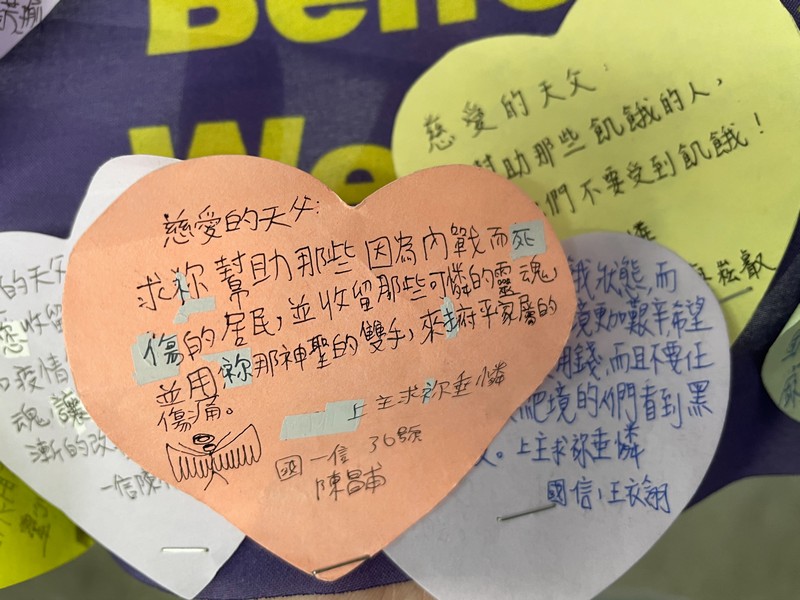 Bene
We
慈愛的天父：
求祢幫助那些因為內戰而死
傷的居民，並收留那些可憐的靈魂，
並用祢那神聖的雙手，來撫平家屬的
傷痛。
上主求祢垂憐
國一信 36號
陳昌甫
慈愛的天父：
幫助那些飢餓的人，
們不要受到飢餓！
崧叡
我狀態，而
境更加艱辛希望
用錢，而且不要任
的人們看到黑
。上主求祢垂憐
國一信：王
的天父
您收留
疫情
魂讓
漸的改
一信陳